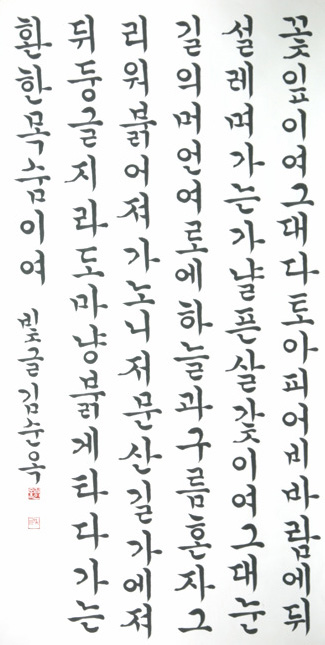 꽃잎이여그대다토아피어비바람에뒤
설레며가는가냘픈살갗이여그대눈
길의머언여로에하늘과구름혼자그
리워붉어져가노니저문산길가에져
뒤둥글지라도마냥붉게타다가는
환한목숨이여 빛글김순옥